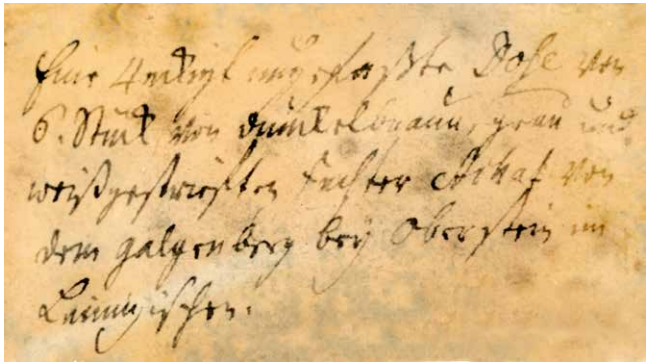 Eine 4eckigt ungefaßte Dose von
6. Stück von dunkelbraun, grau und
weißgestreiften Achat von
dem galgenberg bey Oberstein im